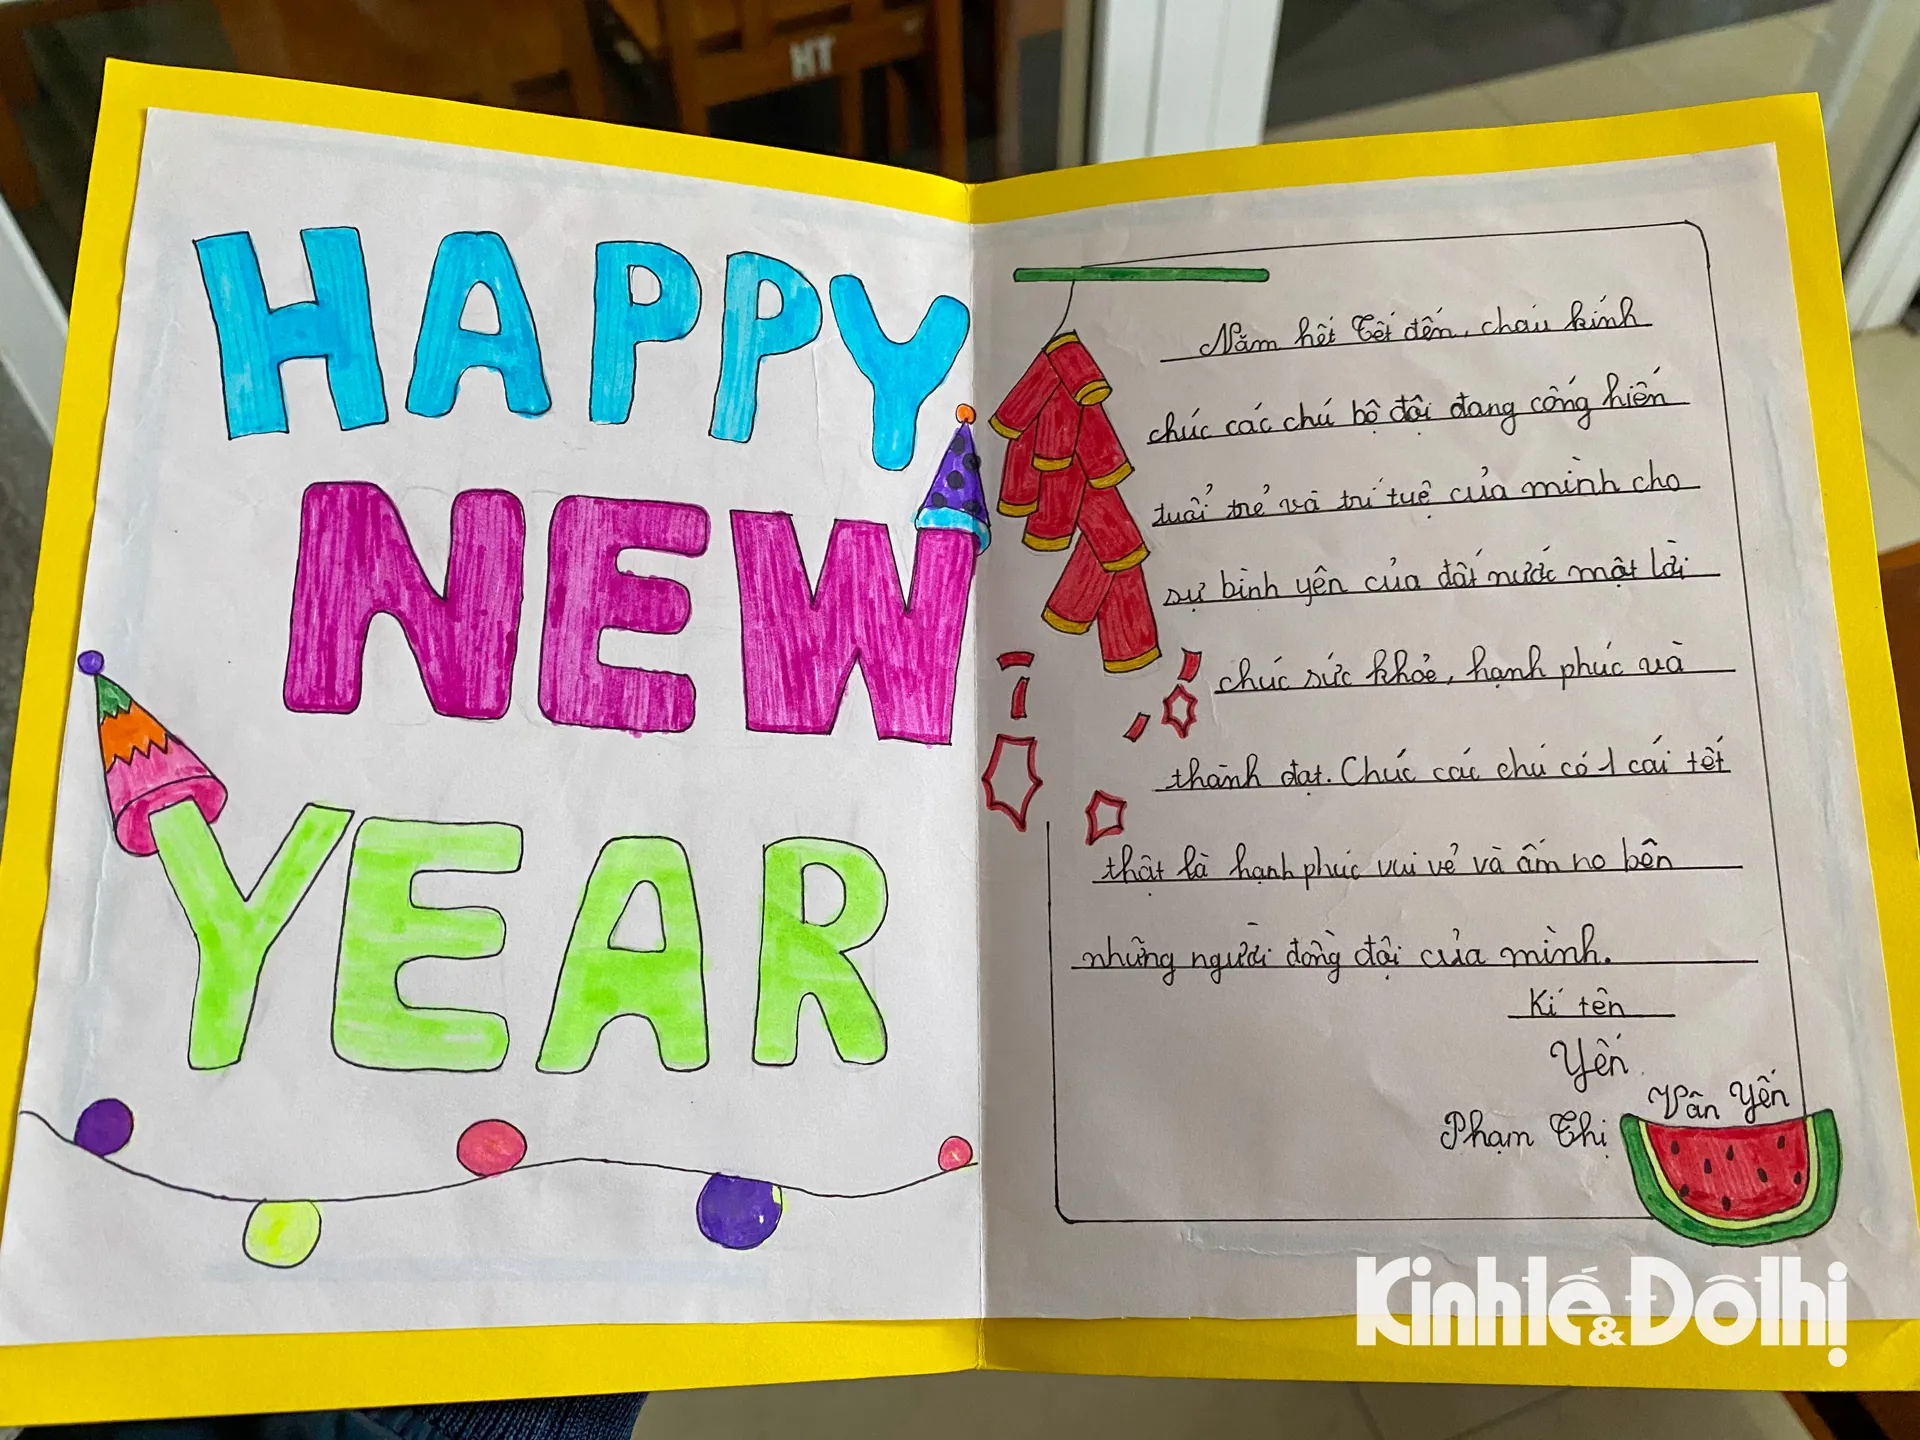 HT
HAPPY
NEW
YEAR
Năm hết Tết đến, cháu kính
chúc các chú bộ đội đang cống hiến
tuổi trẻ và trí tuệ của mình cho
sự bình yên của đất nước một lời
chúc sức khỏe, hạnh phúc và
thành đạt. Chúc các chú có 1 cái tết
thật là hạnh phúc vui vẻ và ấm no bên
những người đồng đội của mình.
Kí tên
Yến
Phạm Thị Vân Yến
Kinhtế & Đôthị